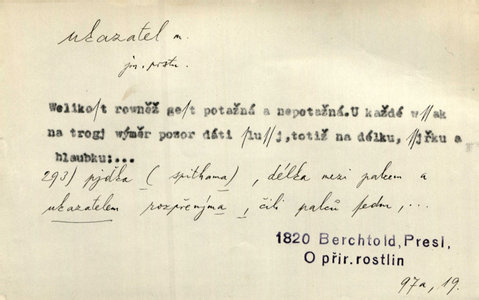 ukazatel m.
jm. prstu
Weliko/t rowněž ge/t potažná a nepotažná.U každé w//ak
na trogj wýměr pozor dáti /lu//j,totiž na délku, //jřku a
hlaubku:...
293) pjďka (spithama), délka mezi palcem a
ukazatelem rozpěnýma, čili palců sedm, ...
1820 Berchtold, Presl,
O přir. rostlin
97a, 19.